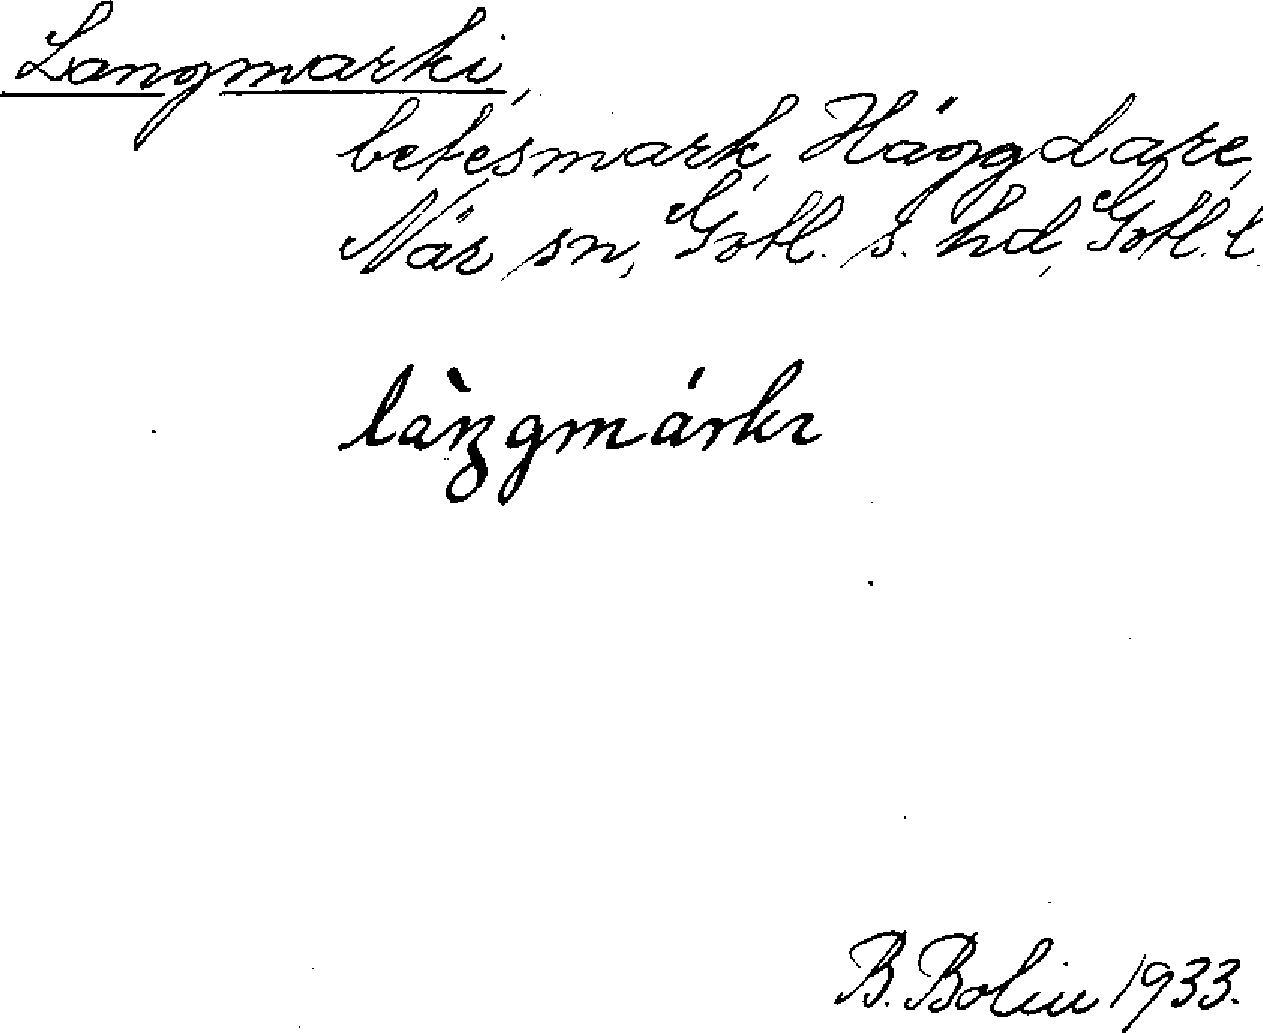 Langmarki,
betesmark, Hägdare,
När sn, Gotl. s. hd, Gotl. l.
làŋgmárkɪ
B. Bolin 1933.